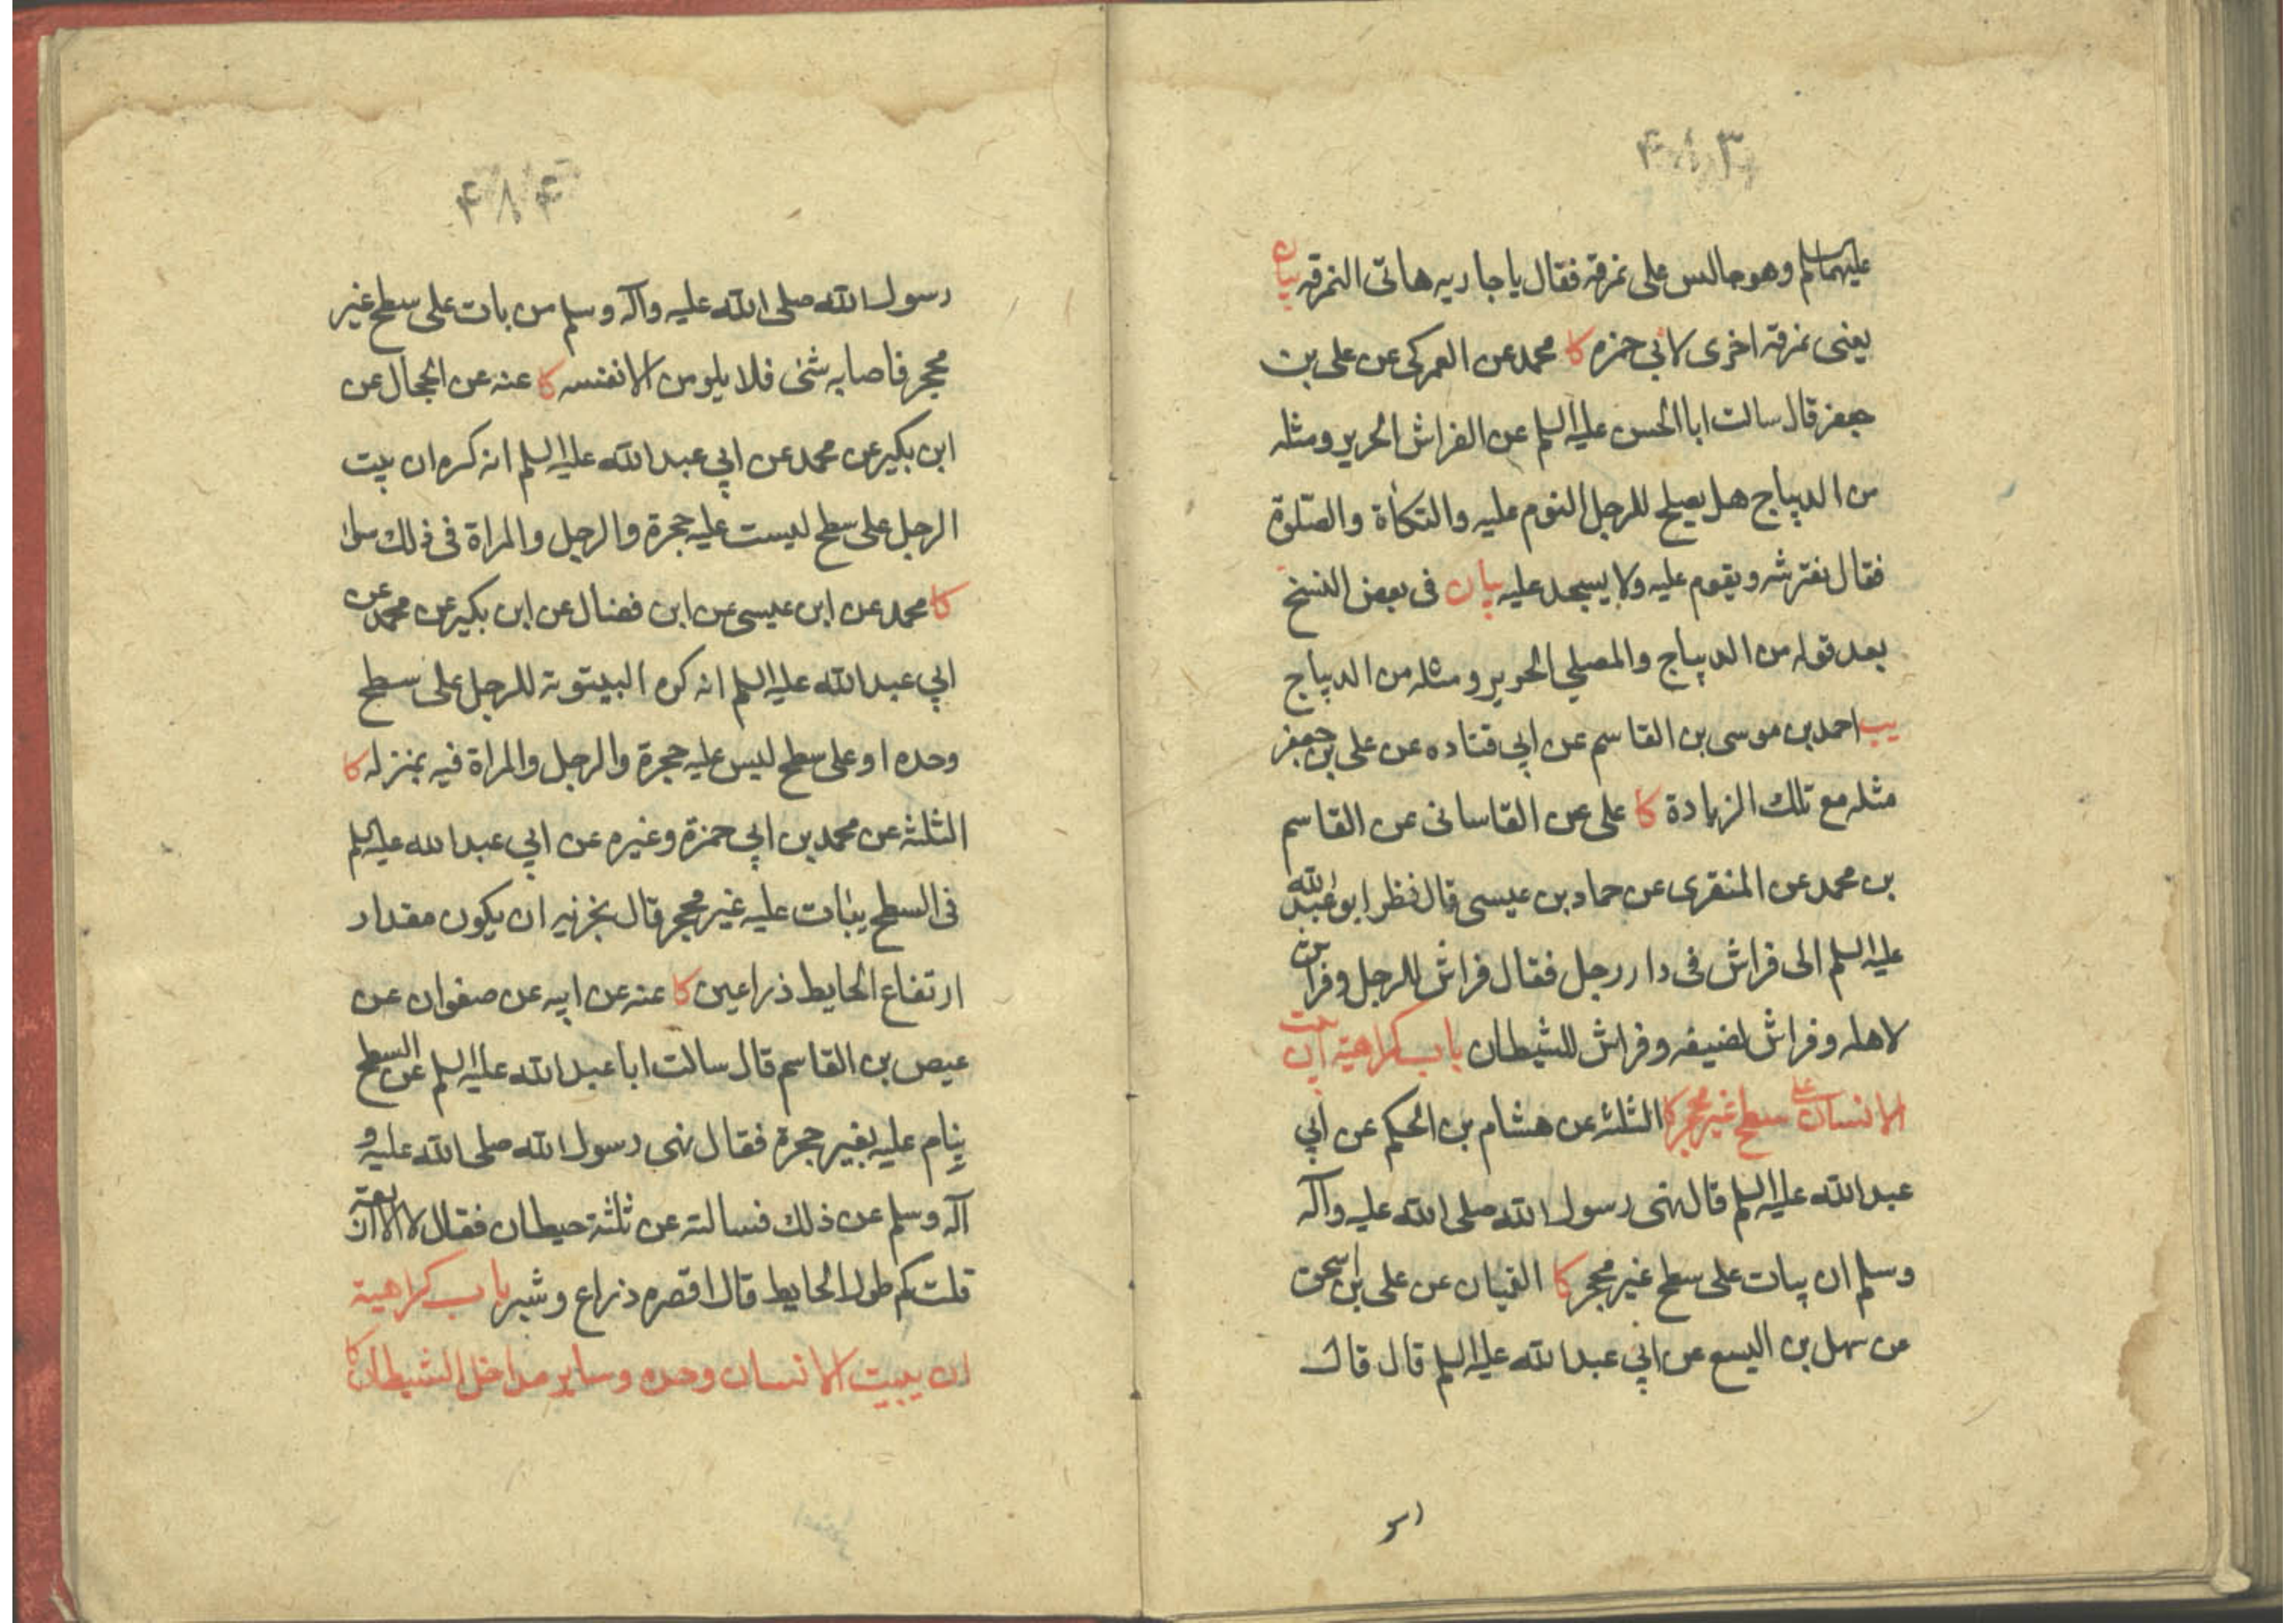 ۴۸۳
عليهما السلم وهو جالس على نمرقة فقال يا جاريه هاتى النمرقه بيان
يعنى نمرقة اخرى لابي حمزه كا محمد عن العمركى عن على بن
جعفر قال سالت ابا الحسن عليه السلم عن الفراش الحرير ومثله
من الديباج هل يصلح للرجل النوم عليه والتكأة والصلوة
فقال نفترشه ويقوم عليه ولا يسجد عليه بيان فى بعض النسخ
بعد قوله من الديباج والمصلي الحرير ومثله من الديباج
يب احمد بن موسى بن القاسم عن ابي قتاده عن على بن جعفر
مثله مع تلك الزيادة كا على عن القاسانى عن القاسم
بن محمد عن المنقرى عن حماد بن عيسى قال نظر ابو عبد الله
عليه السلم الى فراش فى دار رجل فقال فراش للرجل وفراش
لاهله وفراش لضيفه وفراش للشيطان باب كراهية ان يبيت
الانسان على سطح غير محجر كا الثلثة عن هشام بن الحكم عن ابي
عبد الله عليه السلم قال نهى رسول الله صلى الله عليه وآله
وسلم ان يبات على سطح غير محجر كا القميان عن على بن اسحق
عن سهل بن اليسع عن ابي عبد الله عليه السلم قال قال
۴۸۴
رسول الله صلى الله عليه وآله وسلم من بات على سطح غير
محجر فاصابه شئ فلا يلومن الا نفسه كا عنه عن الحجال عن
ابن بكير عن محمد عن ابي عبد الله عليه السلم انه كره ان يبيت
الرجل على سطح ليست عليه حجرة والرجل والمراة فى ذلك سواء
كا محمد عن ابن عيسى عن ابن فضال عن ابن بكير عن محمد عن
ابي عبد الله عليه السلم انه كره البيتوتة للرجل على سطح
وحده او على سطح ليس عليه حجرة والرجل والمراة فيه بمنزله كا
الثلثة عن محمد بن ابي حمزة وغيره عن ابي عبد الله عليه السلم
فى السطح يبات عليه غير محجر قال يجزيه ان يكون مقدار
ارتفاع الحايط ذراعين كا عنه عن ابيه عن صفوان عن
عيص بن القاسم قال سالت ابا عبد الله عليه السلم عن السطح
ينام عليه بغير حجرة فقال نهى رسول الله صلى الله عليه و
آله وسلم عن ذلك فسالته عن ثلثة حيطان فقال لا الا اربعة
قلت كم طول الحايط قال اقصره ذراع وشبر باب كراهية
ان يبيت الانسان وحده وساير مداخل الشيطان كا